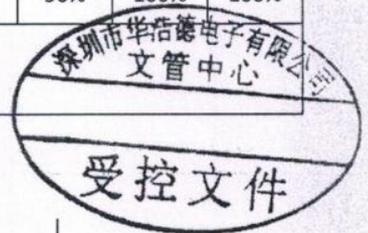 深圳市华浩德电子有限公司
文管中心
受控文件